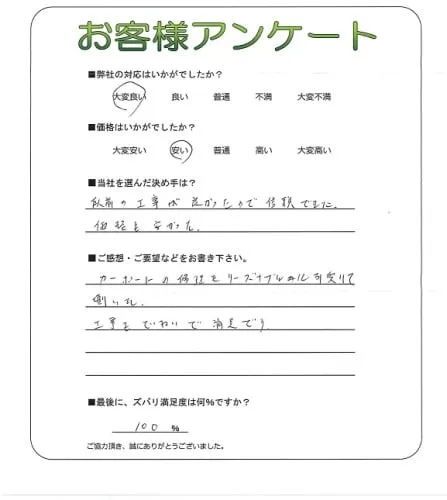 お客様アンケート
■弊社の対応はいかがでしたか？
大変良い 良い 普通 不満 大変不満
■価格はいかがでしたか？
大変安い 安い 普通 高い 大変高い
■当社を選んだ決め手は？
以前の工事が良かったので信頼できた。
価格も安かった。
■ご感想・ご要望などをお書き下さい。
カーポートの修理をリーズナブル
工事もていねいで満足です
■最後に、ズバリ満足度は何%ですか？
100 %
ご協力頂き、誠にありがとうございました。